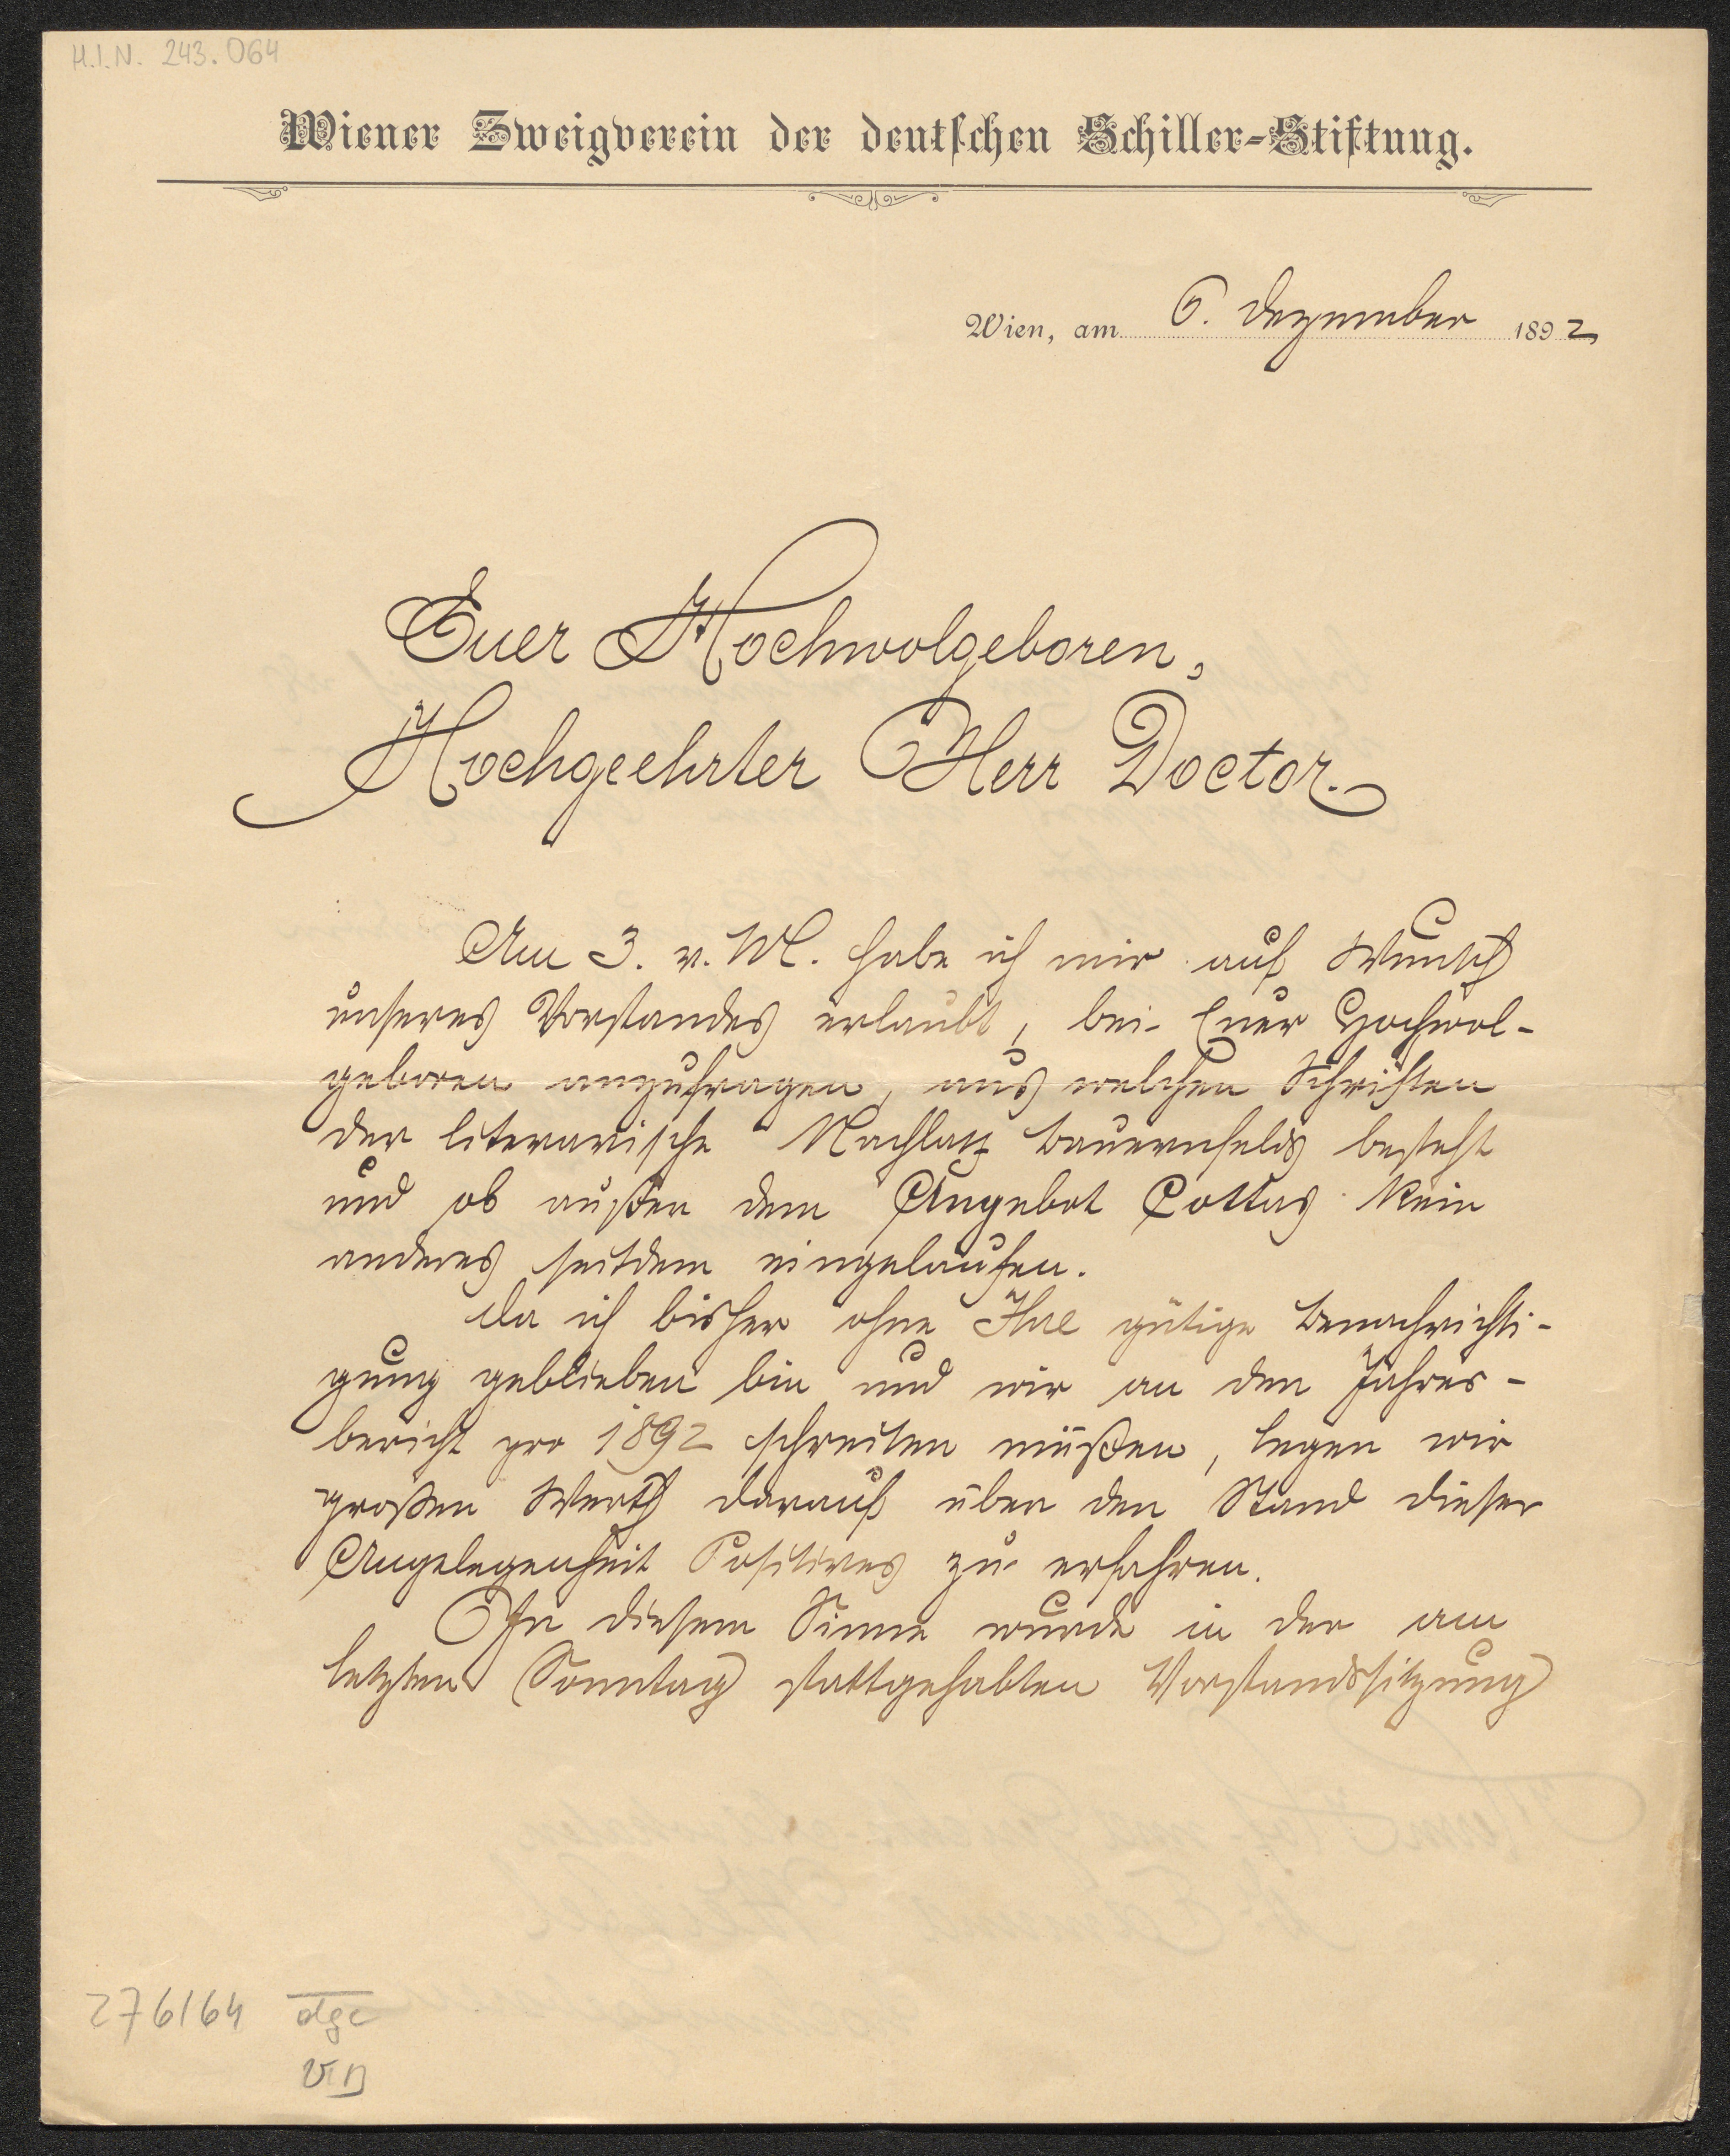 H.I.N. 243.064
Wiener Zweigverein der deutschen Schiller-Stiftung.
Wien, am 6. Dezember 1892
Euer Hochwolgeboren,
Hochgeehrter Herr Doctor.
Am 3. v. M. habe ich mir auf Wunsch
unseres Vorstandes erlaubt, bei Euer Hochwol-
geboren anzufragen, aus welchen Schriften
der literarische Nachlaß Bauernfelds besteht
und ob außer dem Angebot Cottas kein
anderes seitdem eingelaufen.
Da ich bisher ohne Ihre gütige Benachrichti-
gung geblieben bin und wir an den Jahres-
bericht pro 1892 schreiten müßen, legen wir
großen Werth darauf über den Stand dieser
Angelegenheit Positives zu erfahren.
In diesem Sinne wurde in der am
letzten Sonntag stattgehabten Vorstandssitzung
276164